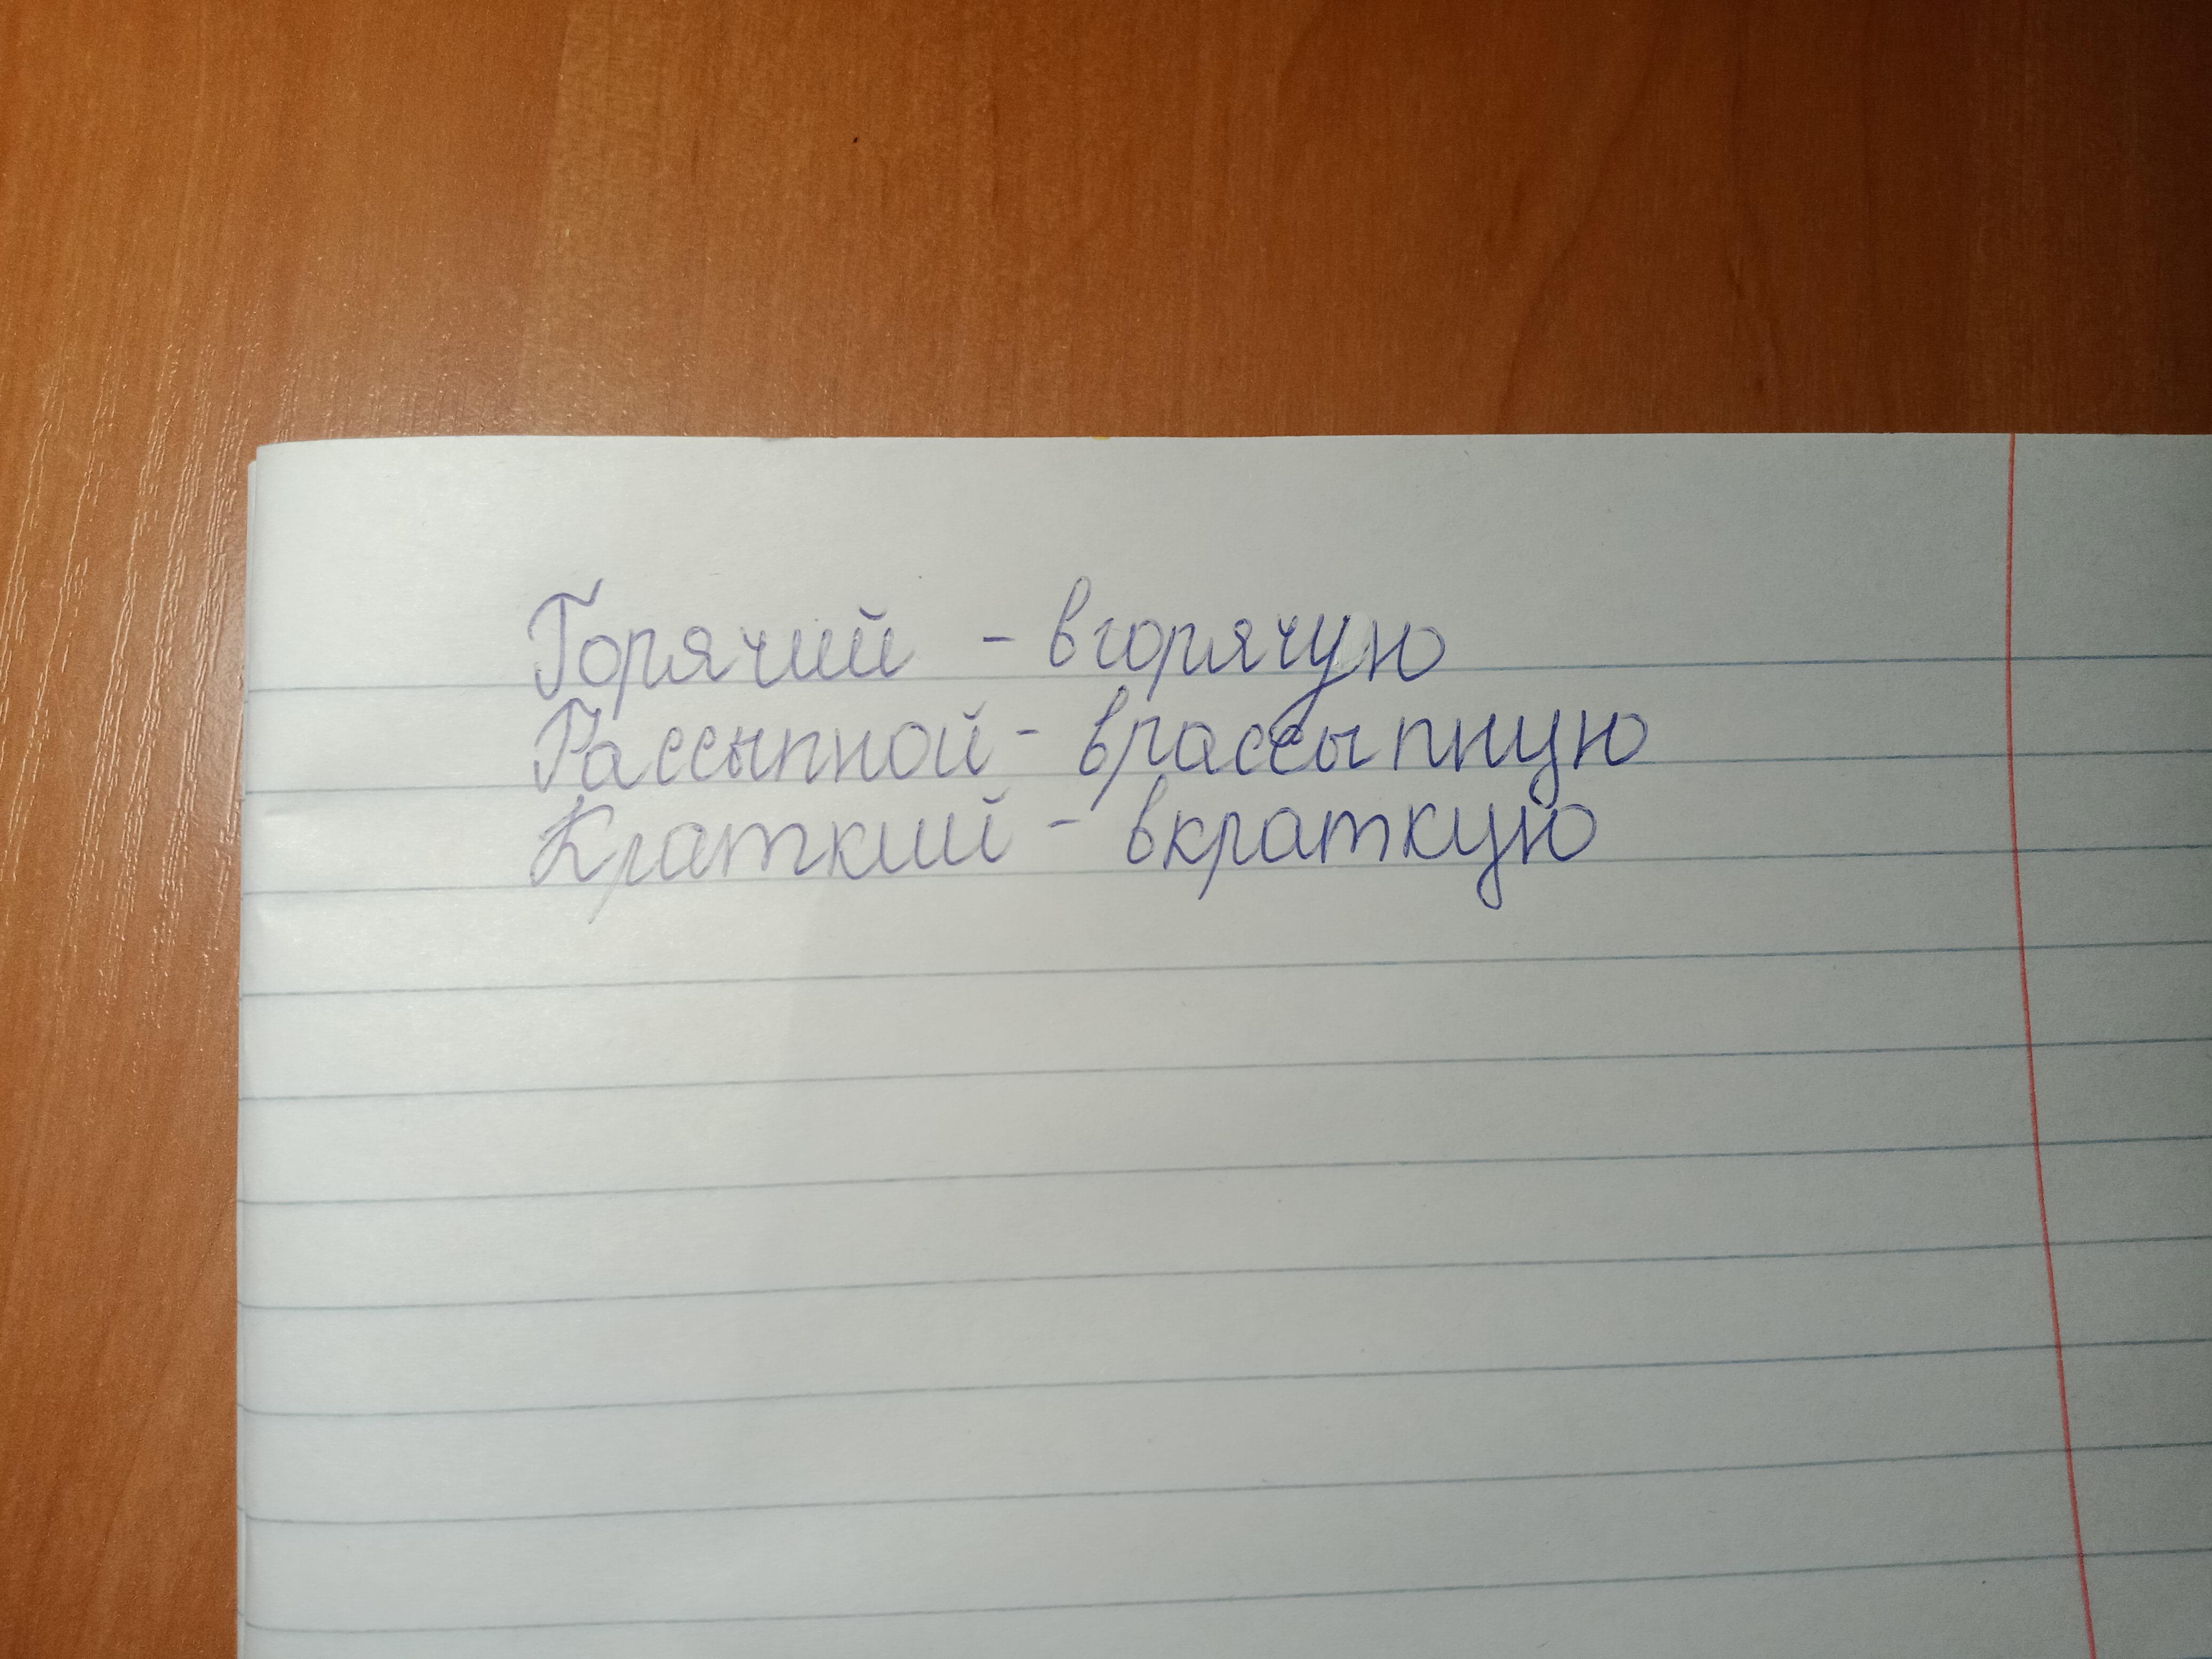 Горячий - вгорячую
Рассыпной - врассыпную
Краткий - вкраткую